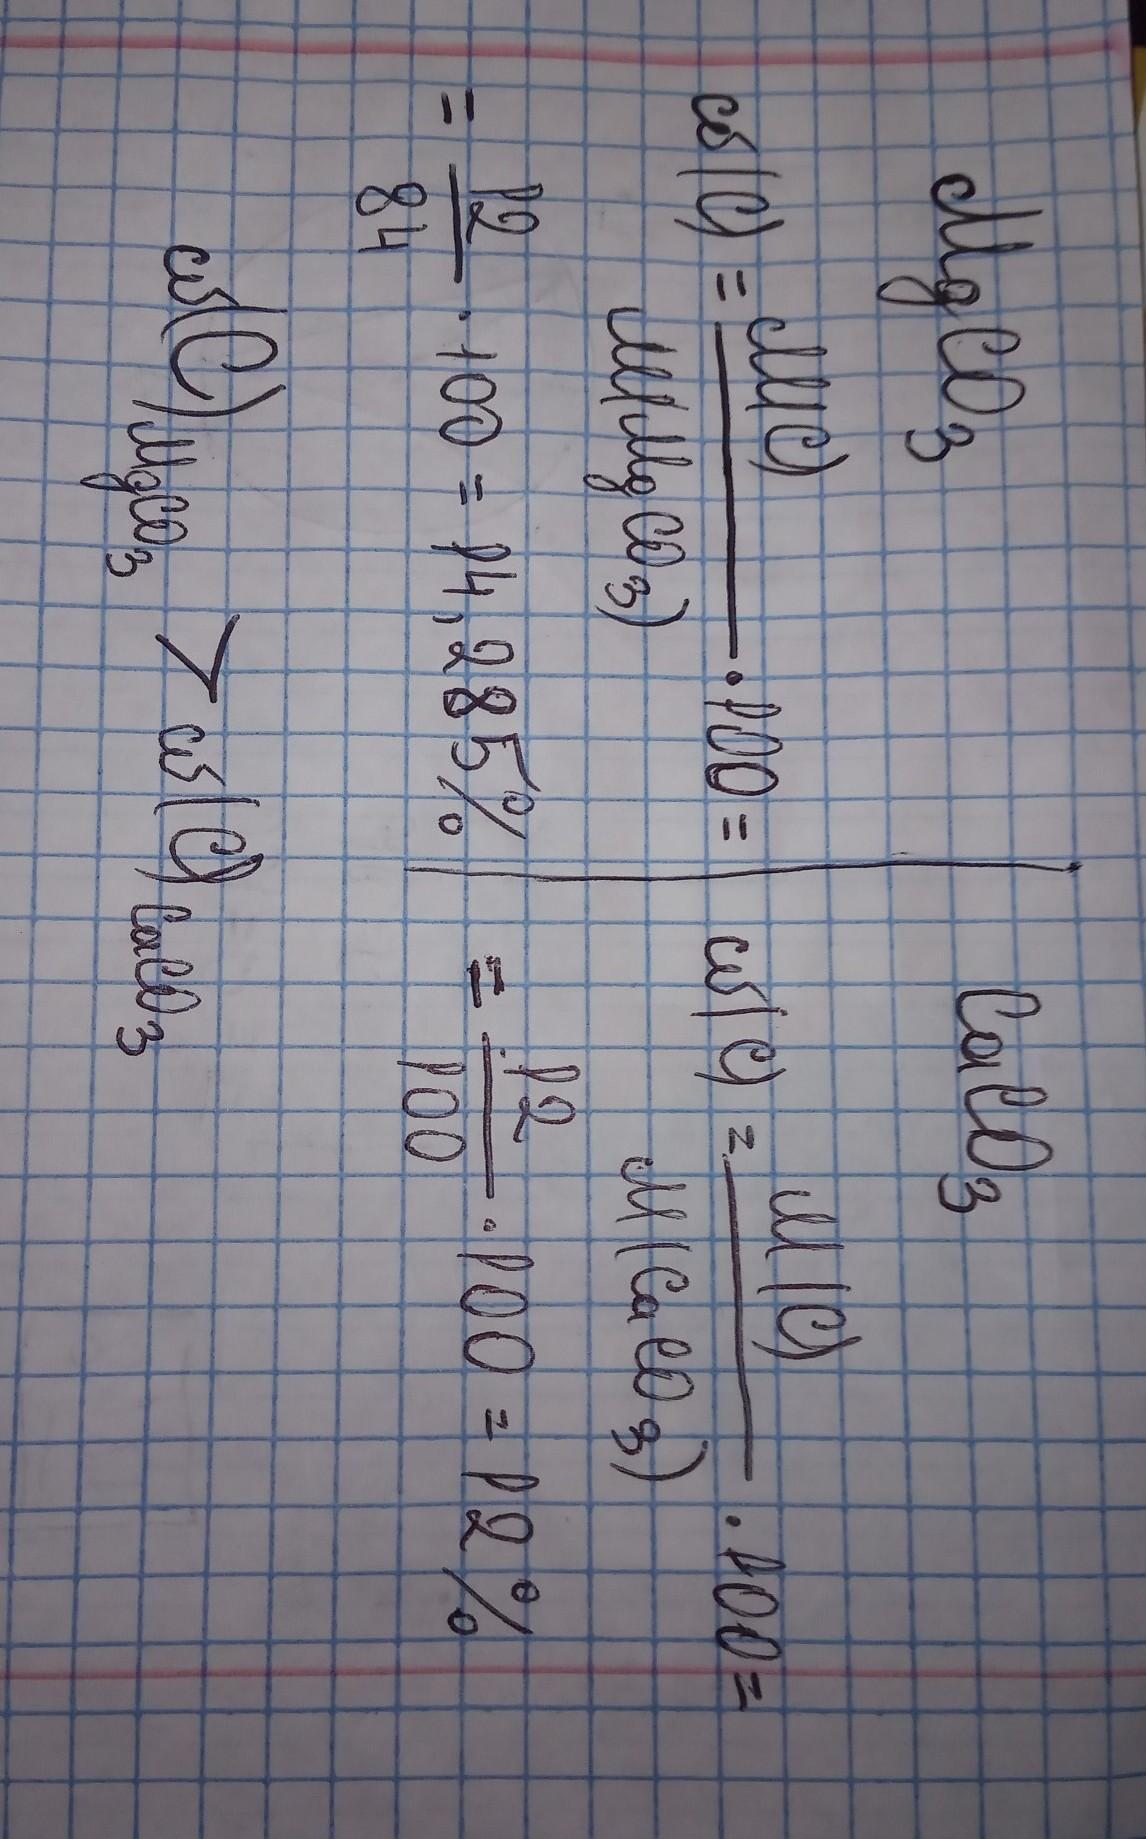 MgCO₃
CaCO₃
ω(C) = M(C) / M(MgCO₃) · 100 =
= 12 / 84 · 100 = 14,285%
ω(C) = M(C) / M(CaCO₃) · 100 =
= 12 / 100 · 100 = 12%
ω(C) MgCO₃ > ω(C) CaCO₃